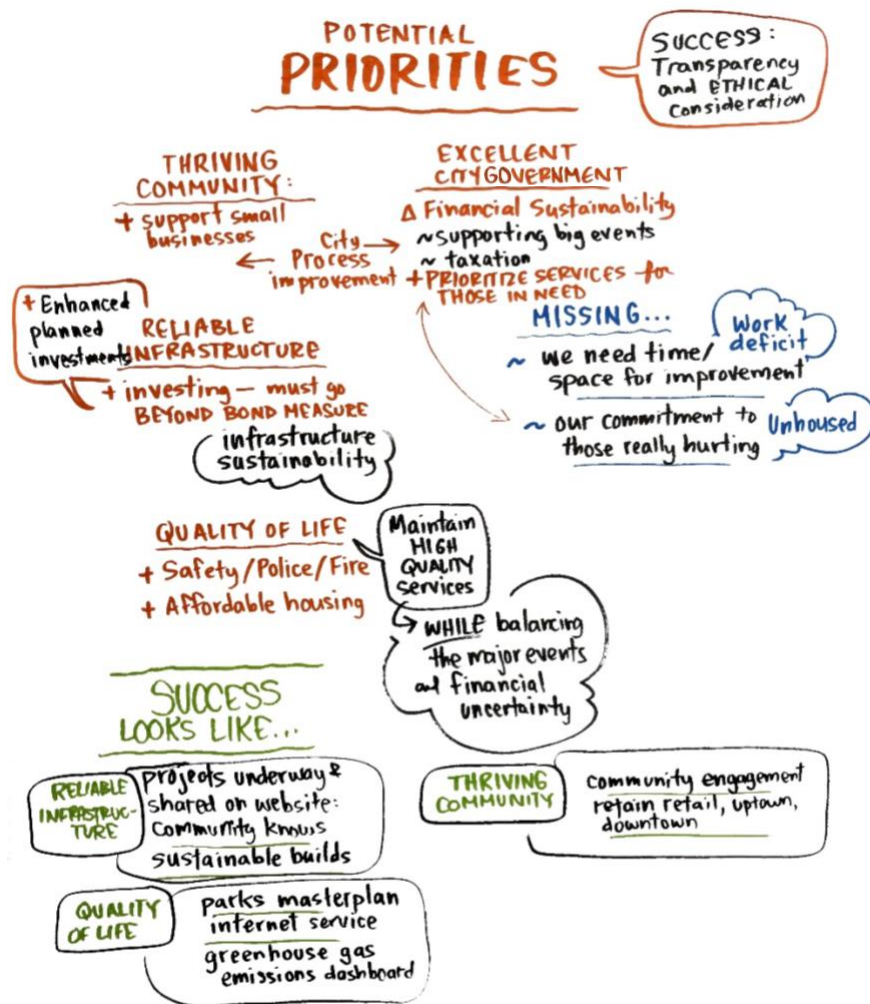 POTENTIAL
PRIORITIES
SUCCESS:
Transparency
and ETHICAL
Consideration
THRIVING
COMMUNITY:
+ support small
businesses
EXCELLENT
CITY GOVERNMENT
Δ Financial Sustainability
~supporting big events
~ taxation
+PRIORITIZE SERVICES for
THOSE IN NEED
← City →
Process
improvement
+ Enhanced
planned
investments
RELIABLE
INFRASTRUCTURE
+ investing — must go
BEYOND BOND MEASURE
infrastructure
sustainability
MISSING...
~ we need time/
space for improvement
Work
deficit
~ our commitment to
those really hurting
Unhoused
QUALITY OF LIFE
+ Safety/Police/Fire
+ Affordable housing
Maintain
HIGH
QUALITY
Services
→ WHILE balancing
the major events
and financial
uncertainty
SUCCESS
LOOKS LIKE...
RELIABLE
INFRASTRUC-
TURE
projects underway &
shared on website:
community knows
sustainable builds
THRIVING
COMMUNITY
community engagement
retain retail, uptown,
downtown
QUALITY
OF LIFE
parks masterplan
internet service
greenhouse gas
emissions dashboard